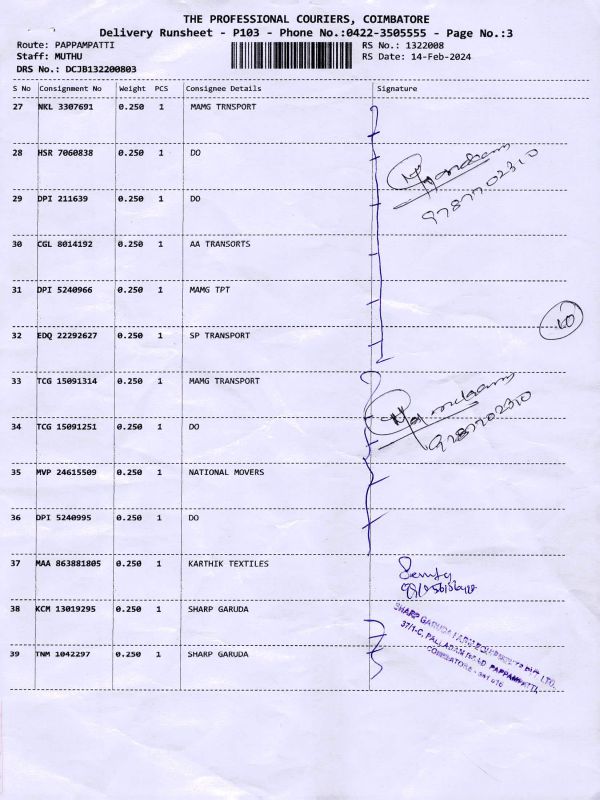 THE PROFESSIONAL COURIERS, COIMBATORE
Delivery Runsheet - P103 - Phone No.:0422-3505555 - Page No.:3
Route: PAPPAMPATTI RS No.: 1322008
Staff: MUTHU RS Date: 14-Feb-2024
DRS No.: DCJB132200803
S No Consignment No Weight PCS Consignee Details Signature
27 NKL 3307691 0.250 1 MAMG TRNSPORT
28 HSR 7060838 0.250 1 DO
9787702310
29 DPI 211639 0.250 1 DO
30 CGL 8014192 0.250 1 AA TRANSORTS
31 DPI 5240966 0.250 1 MAMG TPT
10
32 EDQ 22292627 0.250 1 SP TRANSPORT
33 TCG 15091314 0.250 1 MAMG TRANSPORT
34 TCG 15091251 0.250 1 DO
9787702310
35 MVP 24615509 0.250 1 NATIONAL MOVERS
36 DPI 5240995 0.250 1 DO
37 MAA 863881805 0.250 1 KARTHIK TEXTILES
38 KCM 13019295 0.250 1 SHARP GARUDA
SHARP GARUDA FARM EQUIPMENTS PVT. LTD.
37/1-C, PALLADAM ROAD, PAPPAMPATTI,
COIMBATORE - 641 016
39 TNM 1042297 0.250 1 SHARP GARUDA